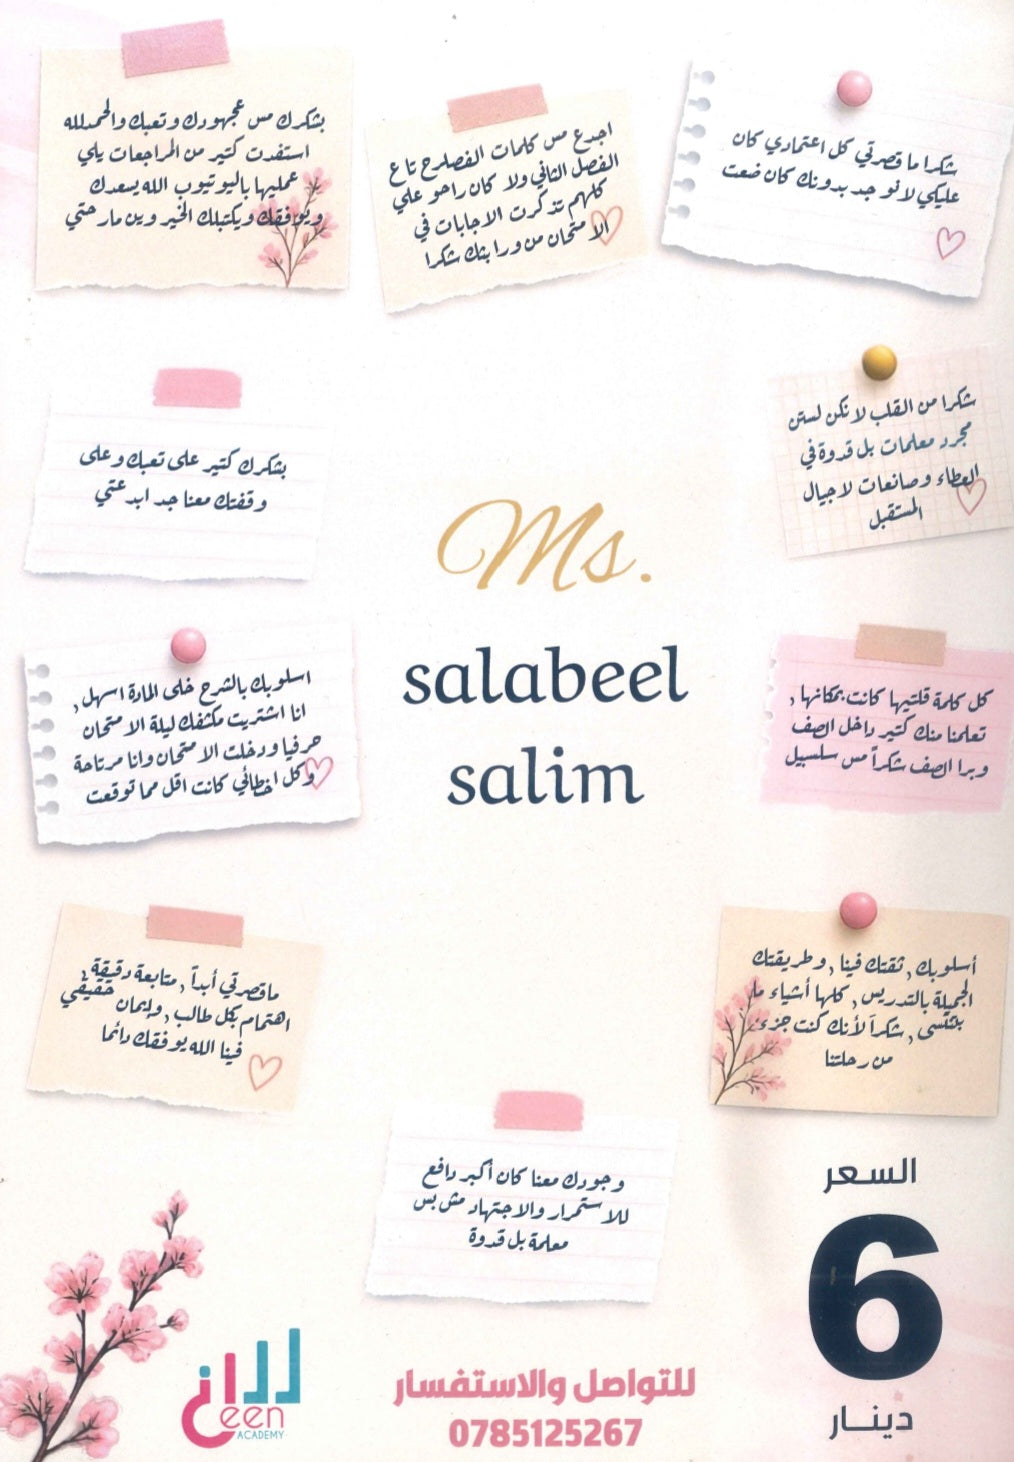 بشكرك مس عجهودك وتعبك والحمدلله
استفدت كتير من المراجعات يلي
عمليها باليوتيوب الله يسعدك
ويوفقك ويكتبلك الخير وين مارحتي
اجدع مس كلمات الفصلرح تاع
الفصل الثاني ولا كان راحو علي
كلهم تذكرت الاجابات في
الامتحان من ورا بثك شكرا
شكرا ما قصرتي كل اعتمادي كان
عليكي لانو جد بدونك كان ضعت
شكرا من القلب لانكن لستن
مجرد معلمات بل قدوة في
العطاء وصانعات لاجيال
المستقبل
بشكرك كتير على تعبك وعلى
وقفتك معنا جد ابدعتي
Ms.
salabeel
salim
اسلوبك بالشرح خلى المادة اسهل ,
انا اشتريت مكثفك ليلة الامتحان
حرفيا ودخلت الامتحان وانا مرتاحة
وكل اخطائي كانت اقل مما توقعت
كل كلمة قلتيها كانت بمكانها ,
تعلمنا منك كتير داخل الصف
وبرا الصف شكراً مس سلسبيل
ماقصرتي أبداً , متابعة دقيقة ,
اهتمام بكل طالب , وإيمان حقيقي
فينا الله يوفقك دائما
أسلوبك , ثقتك فينا , وطريقتك
الجميلة بالتدريس , كلها أشياء ما
بتتنسى , شكراً لأنك كنت جزء
من رحلتنا
وجودك معنا كان أكبر دافع
للاستمرار والاجتهاد مش بس
معلمة بل قدوة
السعر
6
دينار
للتواصل والاستفسار
0785125267
een
ACADEMY